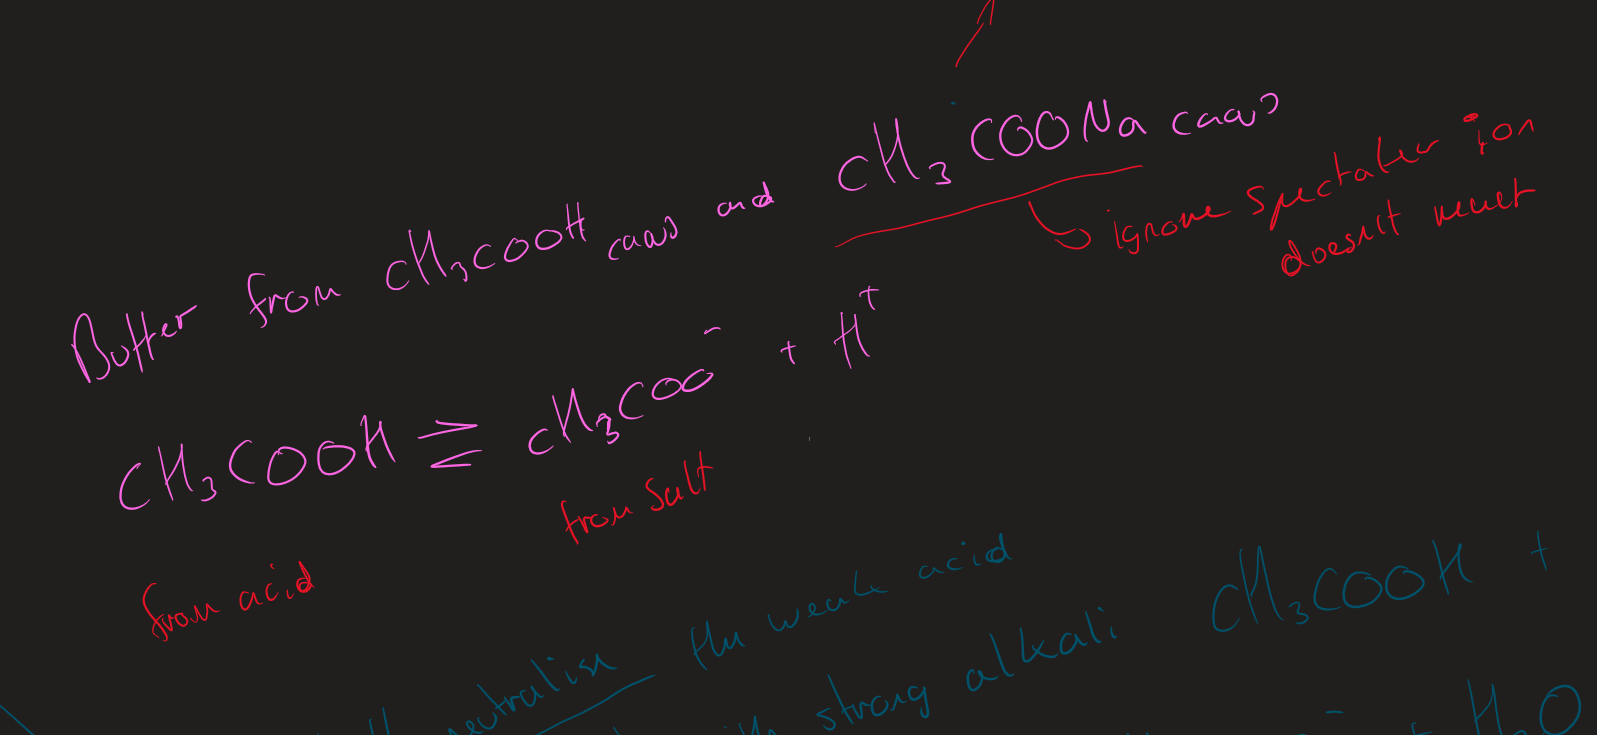 Buffer from CH₃COOH (aq) and CH₃COONa (aq)
ignore spectator ion
doesn't react
CH₃COOH ⇌ CH₃COO⁻ + H⁺
from acid
from salt
neutralise the weak acid
strong alkali CH₃COOH +
H₂O